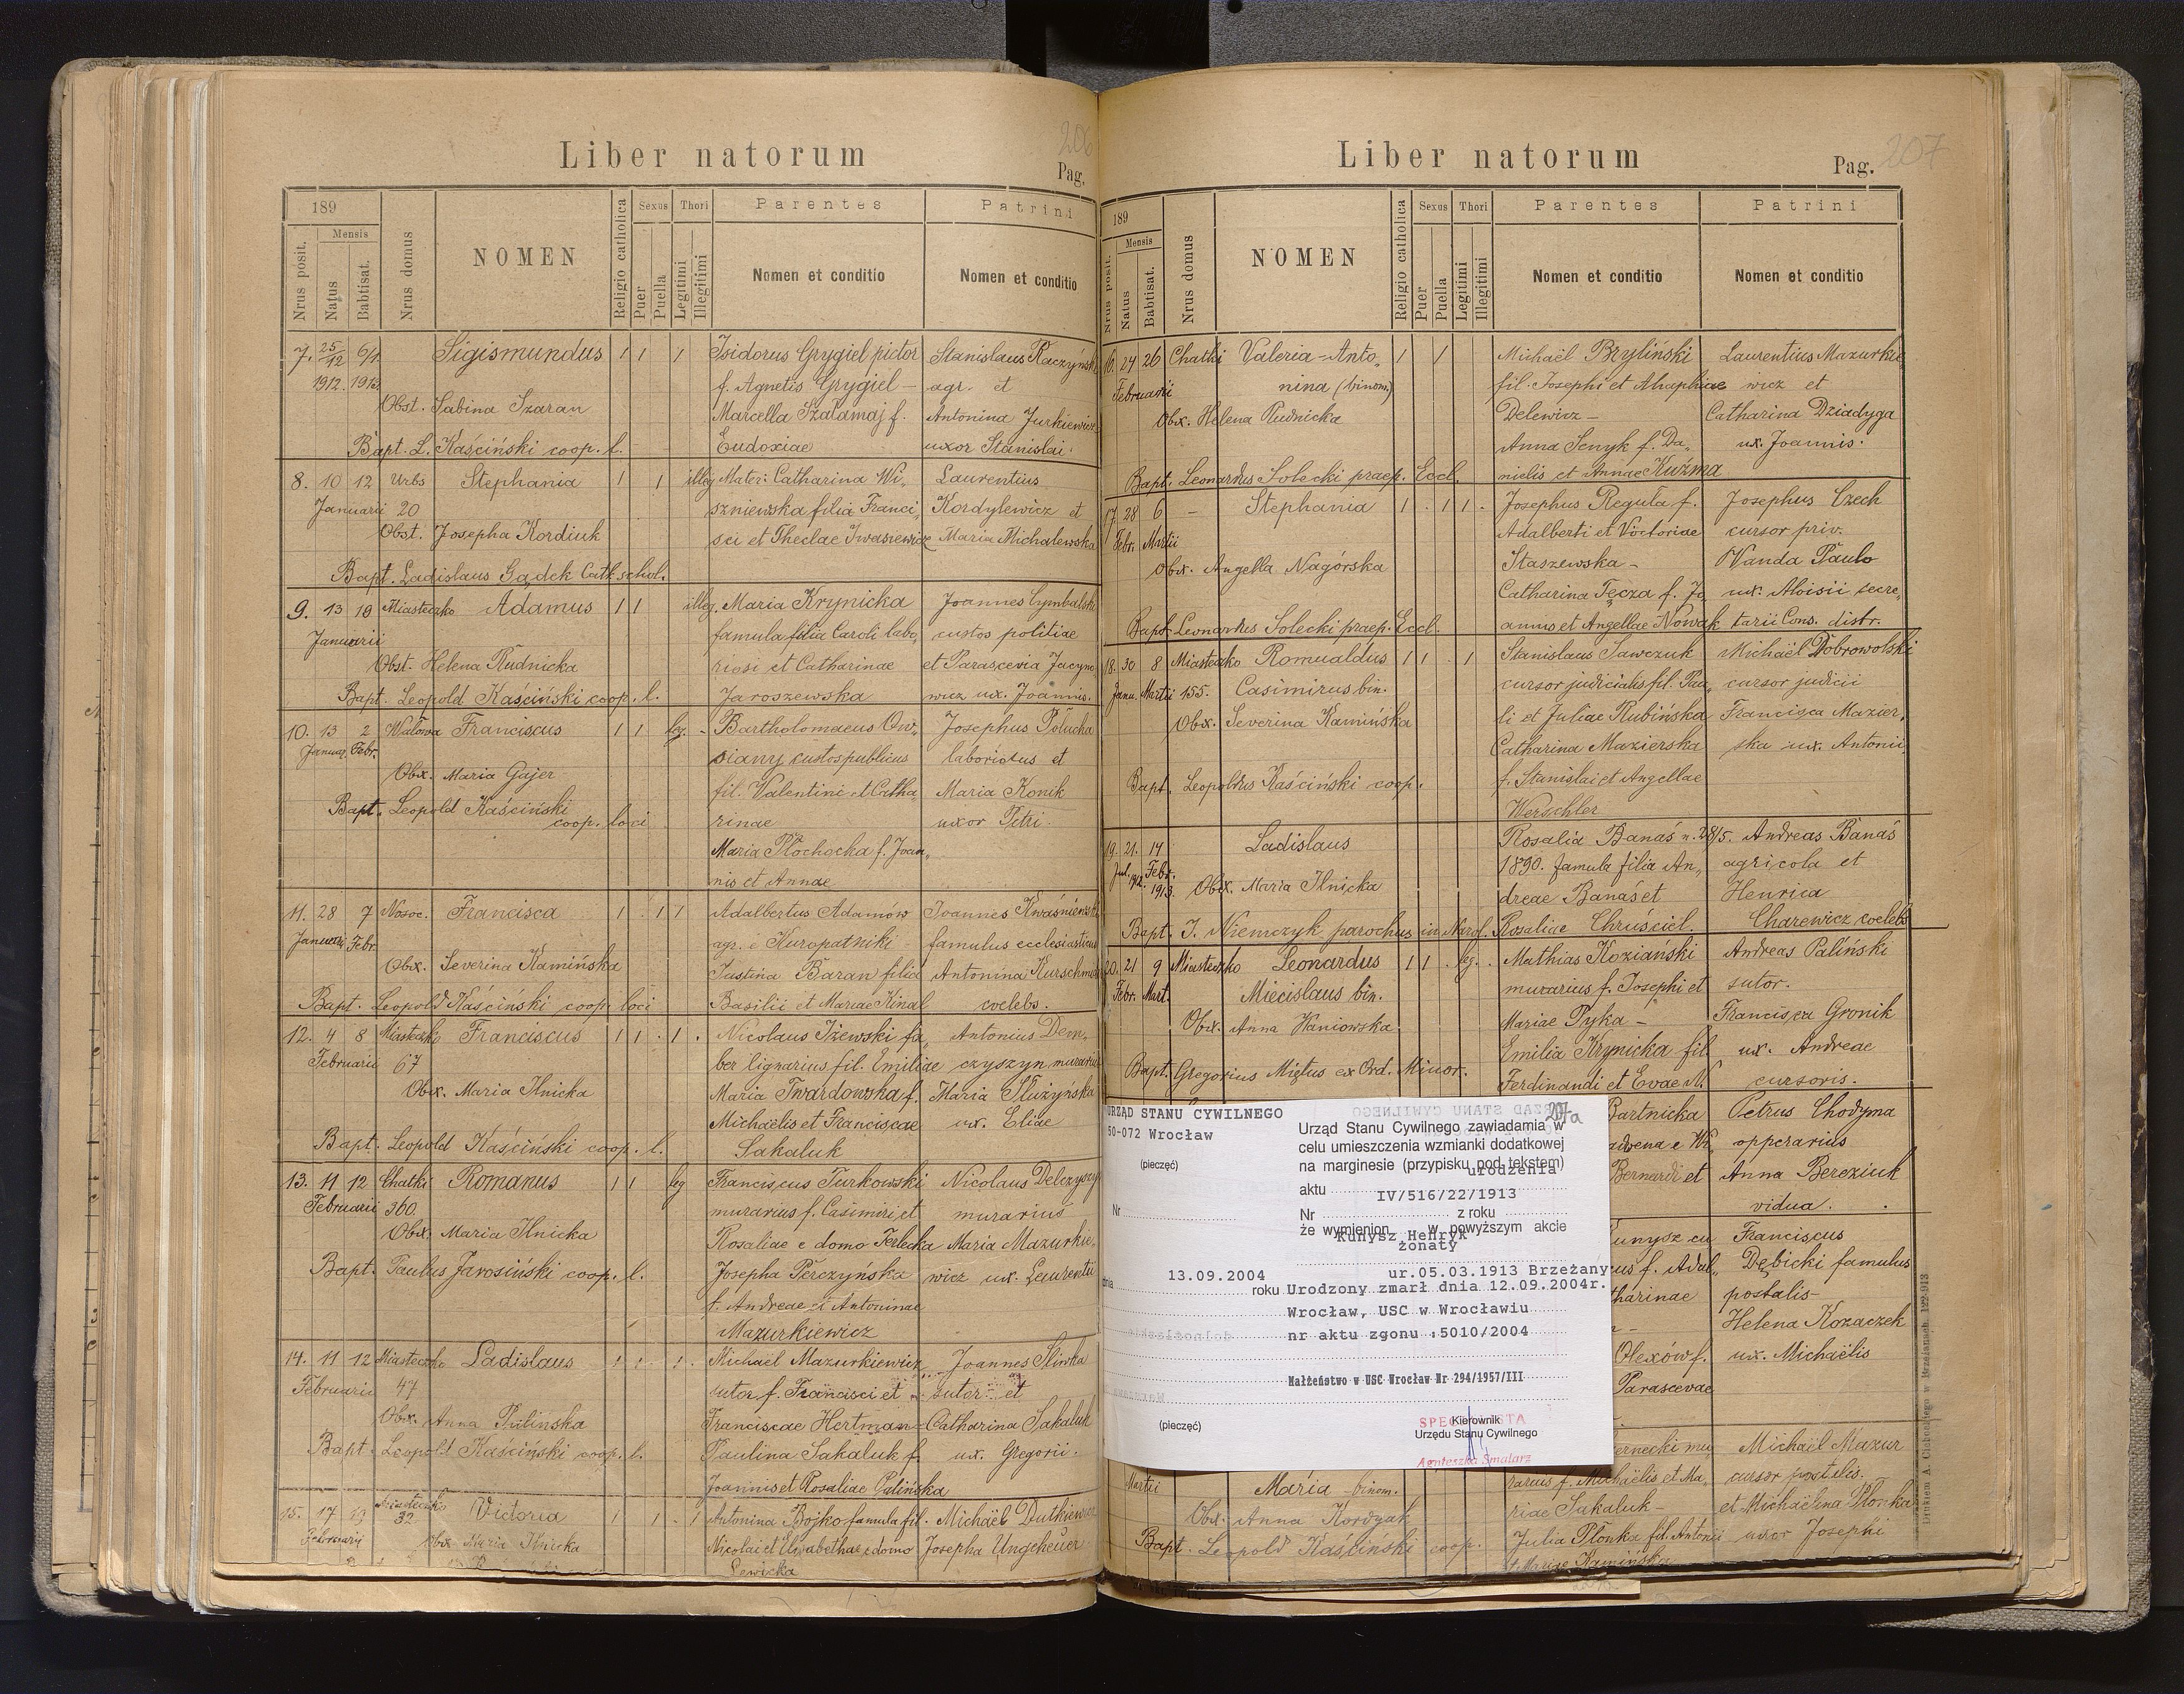 Liber natorum
206
Pag.
189
Mensis
Nrus posit.
Natus
Babtisat.
Nrus domus
NOMEN
Religio catholica
Sexus
Puer
Puella
Thori
Legitimi
Illegitimi
Parentes
Nomen et conditio
Patrini
Nomen et conditio
7. 25/12 6/1 Sigismundus 1 1 1 Isidorus Grygiel pictor Stanislaus Raczyński
1912. 1913. f. Agnetis Grygiel – agr. et
Obst. Sabina Szaran Marcella Szałamaj f. Antonina Jurkiewicz
Bapt. L. Kaściński coop. l. Eudoxiae uxor Stanislai.
8. 10 12 Urbs Stephania 1 1 illeg. Mater: Catharina Wi- Laurentius
Januarii 20 szniewska filia Franci- Kordylewicz et
Obst. Josepha Kordiuk sci et Theclae Iwasiewicz Maria Michalewska
Bapt. Ladislaus Gądek Cath. schol.
9. 13 18 Miasteczko Adamus 1 1 illeg. Maria Krynicka Joannes Cymbalski
Januarii famula filia Caroli labo- custos politiae
Obst. Helena Rudnicka riosi et Catharinae et Parascevia Jacyno-
Bapt. Leopold Kaściński coop. l. Jaroszewska wicz ux. Joannis.
10. 13 2 Wałowa Franciscus 1 1 leg. Bartholomaeus Ow- Josephus Połucha
Januar. Febr. siany custos publicus laboriosus et
Obx. Maria Gajer fil. Valentini et Catha- Maria Konik
Bapt. Leopold Kaściński rinae uxor Petri
coop. loci
Maria Płochocka f. Joan-
nis et Annae
11. 28 7 Nosoc. Francisca 1 1 1 Adalbertus Adamów Joannes Kwaśniewski
Januarii Febr. agr. e Kuropatniki famulus ecclesiasticus
Obx. Severina Kamińska Justina Baran filia Antonina Kurschmann
Bapt. Leopold Kaściński coop. loci Basilii et Mariae Kinal coelebs.
12. 4 8 Miasteczko Franciscus 1 1 1 Nicolaus Iżewski fa- Antonius Dem-
Februarii 67 ber lignarius fil. Emiliae czyszyn murarius
Obx. Maria Ilnicka Maria Twardowska f. Maria Służyńska
Michaelis et Franciscae ux. Eliae
Bapt. Leopold Kaściński coop. l. Sakaluk
13. 11 12 Chatki Romanus 1 1 leg Franciscus Turkowski Nicolaus Delczyszyn
Februarii 360. murarius f. Casimiri et murarius
Obx. Maria Ilnicka Rosaliae e domo Terlecka Maria Mazurkie-
Bapt. Paulus Jarosiński coop. l. Josepha Perczyńska wicz ux. Laurentii
f. Andreae et Antoninae
Mazurkiewicz
14. 11 12 Miasteczko Ladislaus 1 1 1 Michaël Mazurkiewicz Joannes Śliwka
Februarii 47 sutor f. Francisci et sutor et
Obx. Anna Pulinska Franciscae Hertman Catharina Sakaluk
Bapt. Leopold Kaściński coop. l. Paulina Sakaluk f. ux. Gregorii.
Joannis et Rosaliae Palińska
15. 17 19 Miasteczko Victoria 1 1 1 Antonina Bojko famula fil. Michaël Dutkiewicz
Februarii 32 Obx. Maria Ilnicka Nicolai et Elisabethae e domo Josepha Ungeheuer
Lewicka
Liber natorum
Pag. 207
189
Mensis
Nrus posit.
Natus
Babtisat.
Nrus domus
NOMEN
Religio catholica
Sexus
Puer
Puella
Thori
Legitimi
Illegitimi
Parentes
Nomen et conditio
Patrini
Nomen et conditio
16. 24 26 Chatki Valeria-Anto- 1 1 Michaël Bryliński Laurentius Mazurkie-
Februarii nina (binom) fil. Josephi et Ahaphiae wicz et
Obx. Helena Rudnicka Delewicz – Catharina Dziadyga
Anna Senyk f. Da- ux. Joannis.
Bapt. Leonardus Solecki praep. Eccl. nielis et Annae Kuźma
17. 28 6 – Stephania 1 1 1 Josephus Reguła f. Josephus Czech
Febr. Martii Adalberti et Victoriae cursor priv.
Obx. Angella Nagórska Staszewska – Wanda Paulo
Catharina Tęcza f. Jo- ux. Aloisii secre-
Bapt. Leonardus Solecki praep. Eccl. annis et Angellae Nowak tarii Cons. distr.
18. 30 8 Miasteczko Romualdus 1 1 1 Stanislaus Sawczuk Michaël Dobrowolski
Janu. Martii 155. Casimirus bin. cursor judicialis fil. Pau- cursor judicii
Obx. Severina Kamińska li et Juliae Rubińska Francisca Mazier-
Catharina Mazierska ska ux. Antonii
Bapt. Leopoldus Kaściński coop. f. Stanislai et Angellae
Werschler
19. 21. 14 Ladislaus Rosalia Banaś n. 28/5. Andreas Banaś
Jul. 1912. Febr. 1913. 1890. famula filia An- agricola et
Obx. Maria Ilnicka dreae Banaś et Henrica
Bapt. J. Niemczyk parochus in Narol. Rosaliae Chruściel. Charewicz coelebs
20. 21 9 Miasteczko Leonardus 1 1 leg. Mathias Koziański Andreas Paliński
Febr. Mart. Miecislaus bin. murarius f. Josephi et sutor.
Obx. Anna Haniowska Mariae Pyka – Francisca Gronik
Emilia Krynicka fil. ux. Andreae
Bapt. Gregorius Miętus ex Ord. Minor. Ferdinandi et Evae N. cursoris.
Bartnicka Petrus Chodyma
advena e Wi- opperarius
Bernardi et Anna Bereziuk
vidua.
Kunysz cu Franciscus
cus f. Adal- Dębicki famulus
tharinae postalis –
Helena Kozaczek
Olexów f. ux. Michaëlis
Parascevae
ernecki mu- Michaël Mazur
Martii Maria binom. rarius f. Michaëlis et Ma- cursor postalis.
Obx. Anna Kordyak riae Sakaluk – et Michaëlina Płonka
Bapt. Leopold Kaściński coop. Julia Płonka fil. Antonii uxor Josephi
et Mariae Kamińska
URZĄD STANU CYWILNEGO
50-072 Wrocław
(pieczęć)
Nr
207a
Urząd Stanu Cywilnego zawiadamia w
celu umieszczenia wzmianki dodatkowej
na marginesie (przypisku pod tekstem)
urodzenia
aktu
IV/516/22/1913
Nr z roku
że wymienion w powyższym akcie
Kunysz Henryk
żonaty
ur.05.03.1913 Brzeżany
dnia 13.09.2004 roku
Urodzony zmarł dnia 12.09.2004r.
Wrocław, USC w Wrocławiu
nr aktu zgonu :5010/2004
Małżeństwo w USC Wrocław Nr 294/1957/III
(pieczęć)
Kierownik
Urzędu Stanu Cywilnego
Agnieszka Smalarz